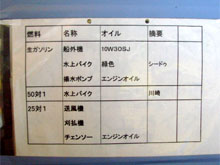 燃料 名称 オイル 摘要
主ガソリン 船外機 10W30SJ
水上バイク 緑色 シードゥ
揚水ポンプ エンジンオイル
50対1 水上バイク 川崎
25対1 送風機
刈払機
チェンソー エンジンオイル